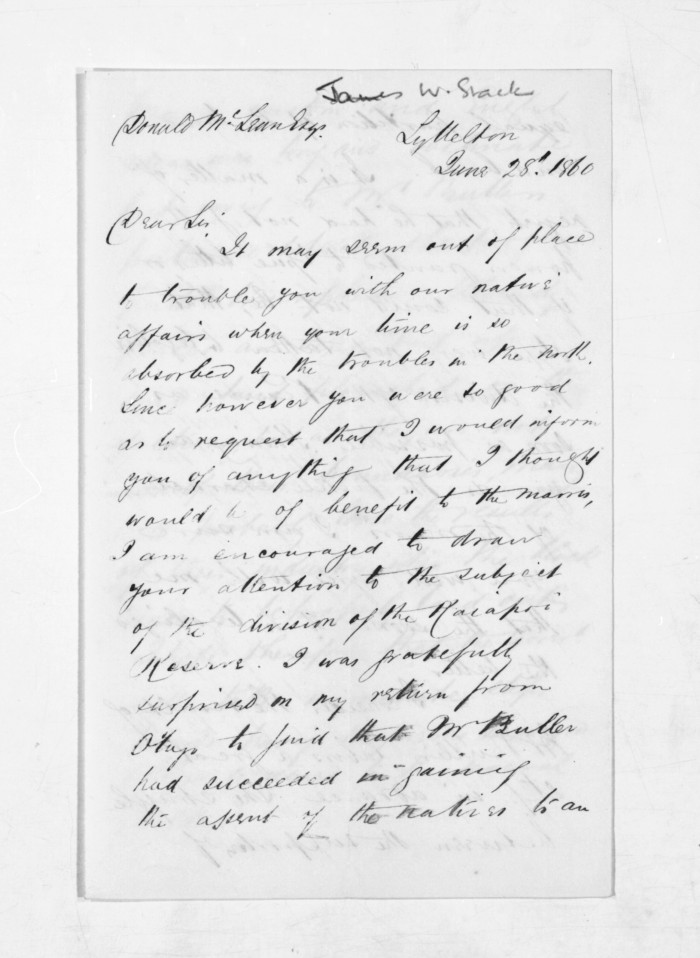 James W. Stack
Donald McLean Esqr.
Lyttelton
June 28th. 1860
Dear Sir
It may seem out of place
to trouble you with our native
affairs when your time is so
absorbed by the troubles in the north.
Since however you were so good
as to request that I would inform
you of anything that I thought
would be of benefit to the maoris,
I am encouraged to draw
your attention to the subject
of the division of the Kaiapoi
Reserve. I was gratefully
surprised on my return from
Otago to find that Mr Buller
had succeeded in gaining
the assent of the natives to an